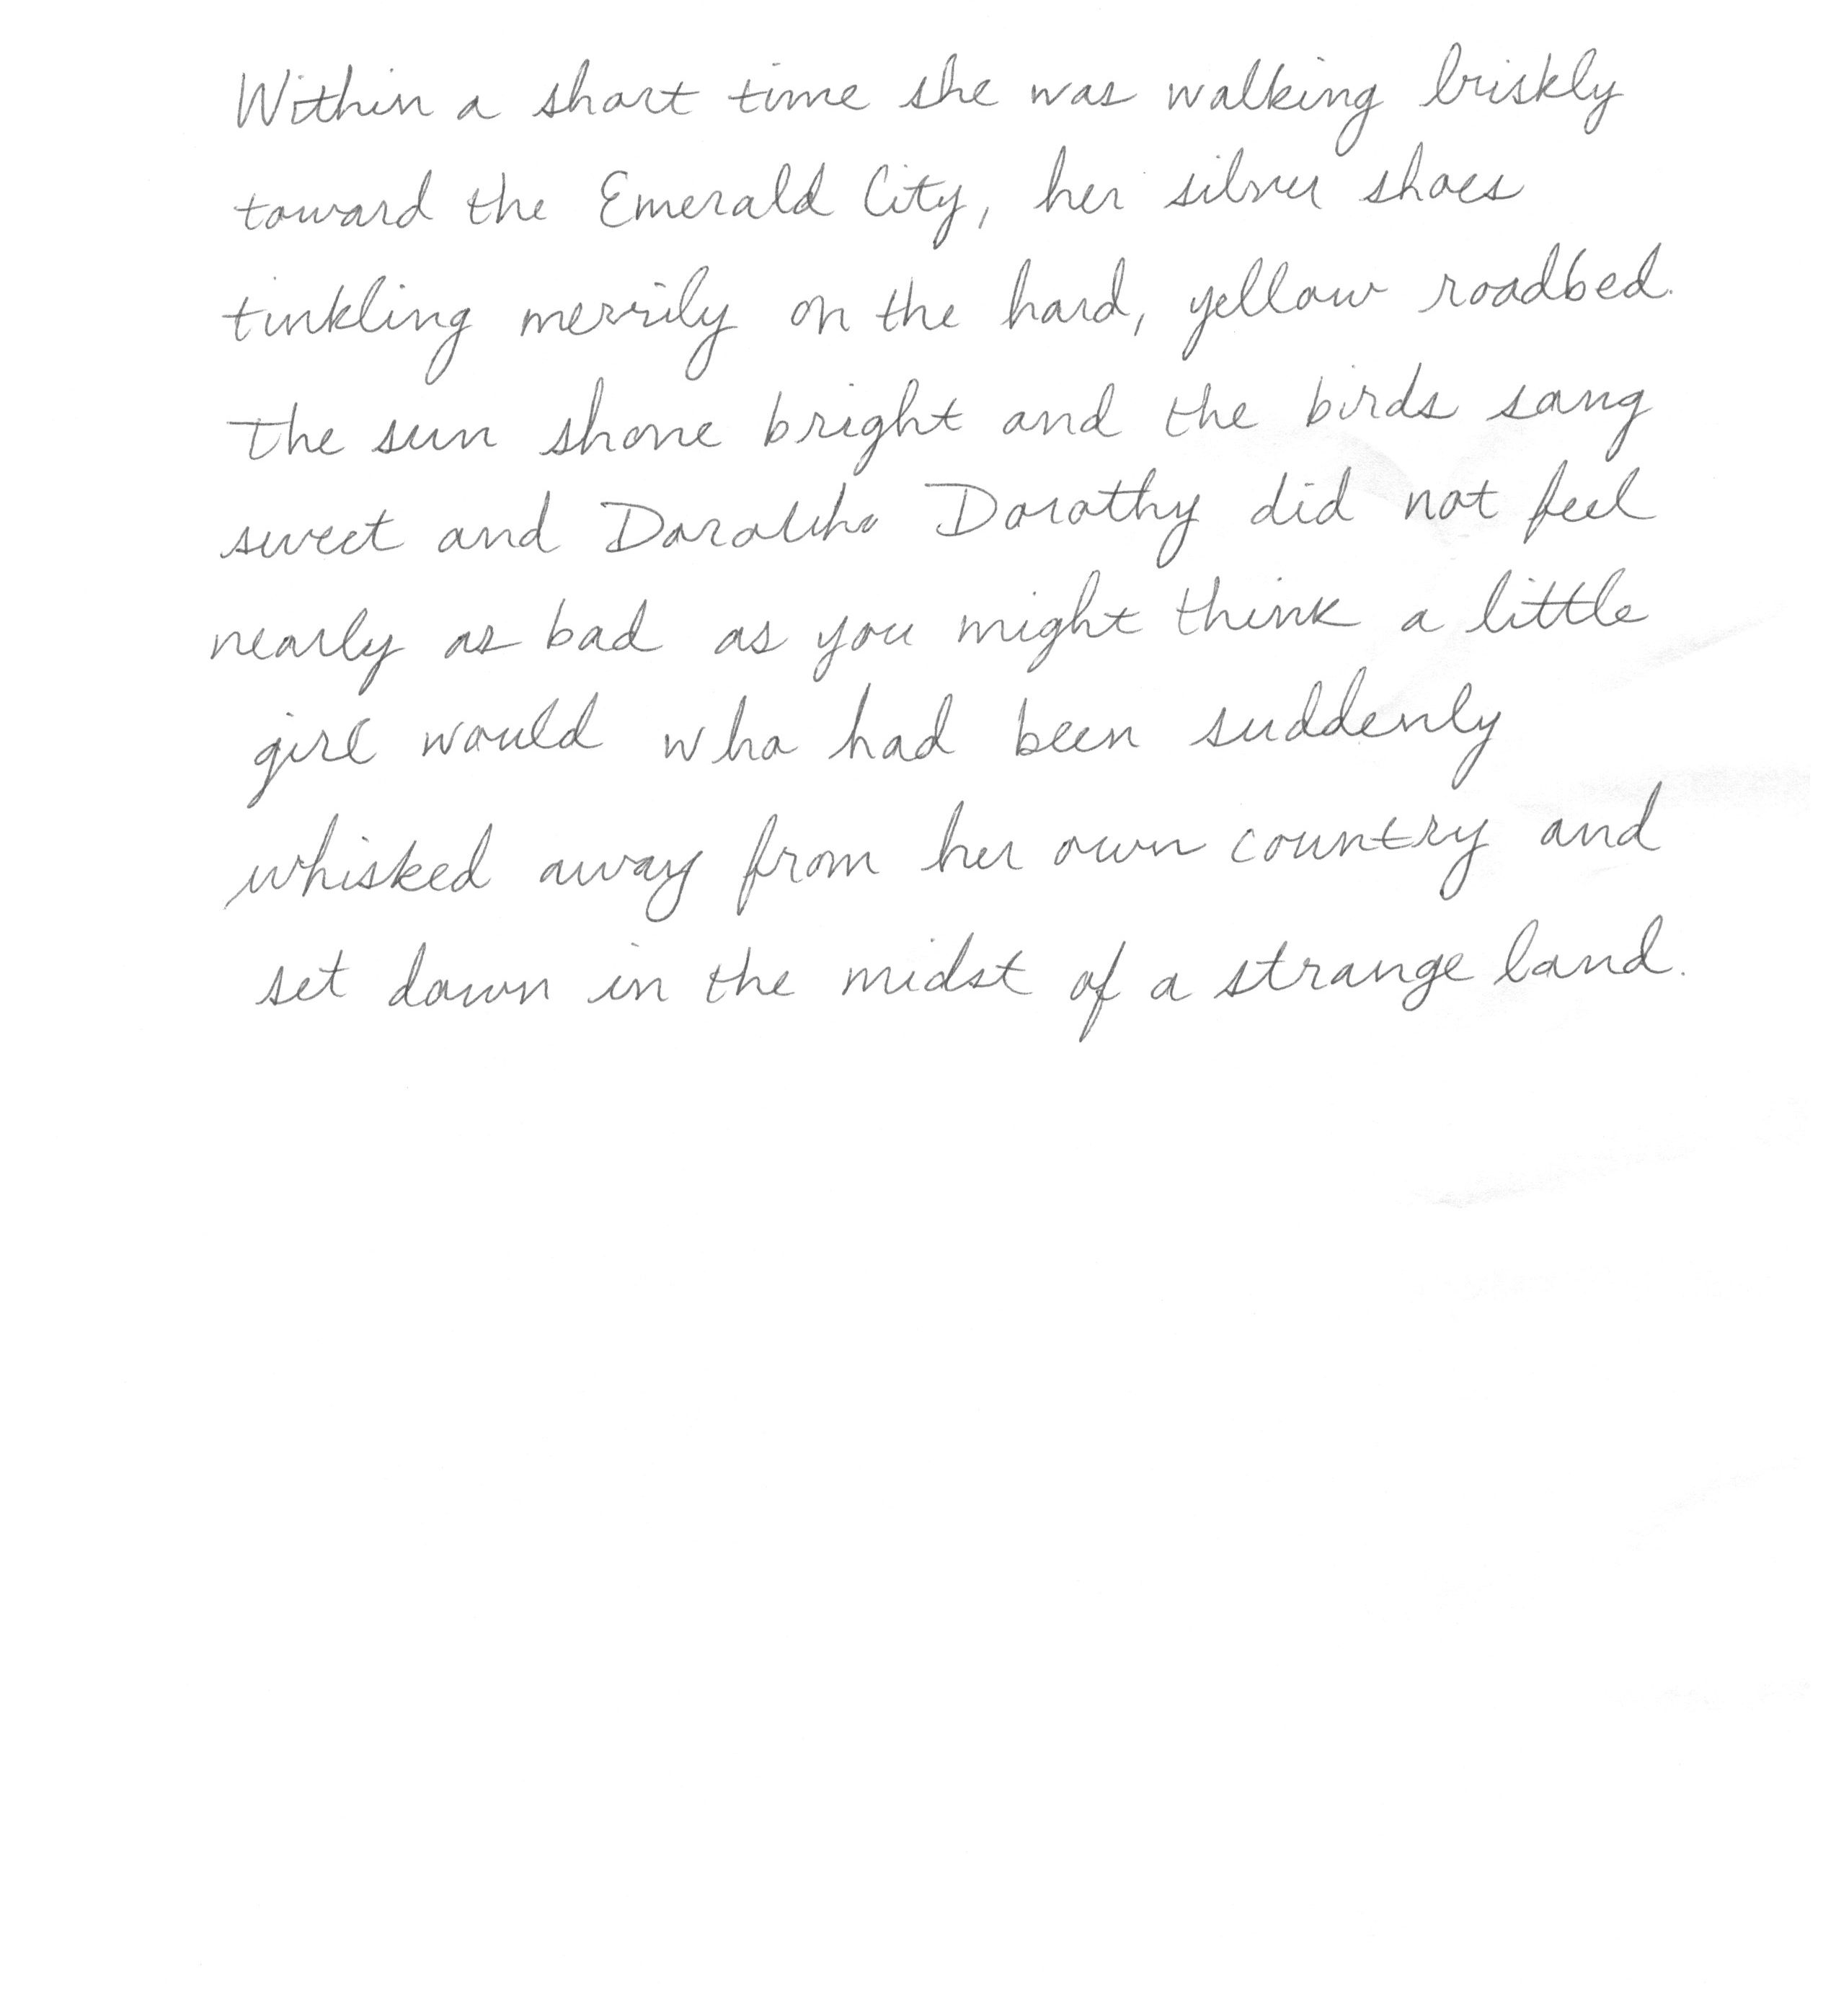 Within a short time she was walking briskly
toward the Emerald City, her silver shoes
tinkling merrily on the hard, yellow roadbed.
The sun shone bright and the birds sang
sweet and Dorothy did not feel
nearly as bad as you might think a little
girl would who had been suddenly
whisked away from her own country and
set down in the midst of a strange land.